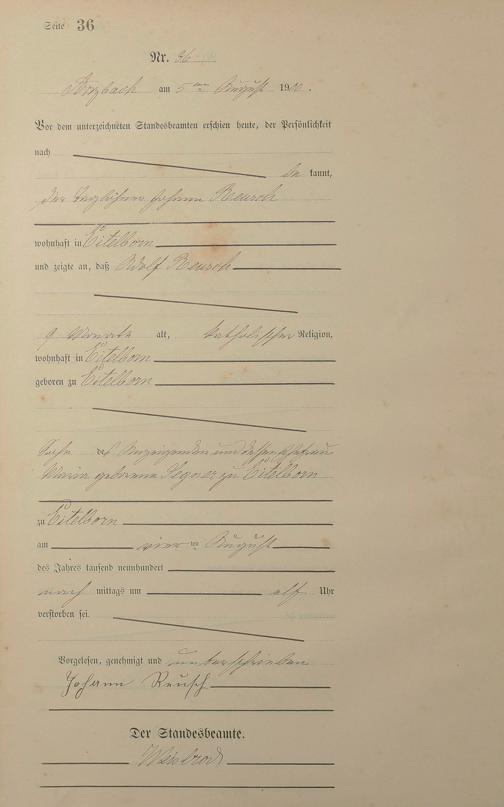 Seite 36
Nr. 36
Arzbach am 5ten August 1900.
Vor dem unterzeichneten Standesbeamten erschien heute, der Persönlichkeit
nach
be kannt,
der Taglöhner Johann Reusch
wohnhaft in Eitelborn
und zeigte an, daß Adolf Reusch
9 Monate alt, katholischer Religion,
wohnhaft in Eitelborn
geboren zu Eitelborn
Sohn des Anzeigenden und dessen Ehefrau
Maria geborene zu Eitelborn
zu Eitelborn
am vier ten August
des Jahres tausend neunhundert
nach mittags um elf Uhr
verstorben sei.
Vorgelesen, genehmigt und unterschrieben
Johann Reusch
Der Standesbeamte.